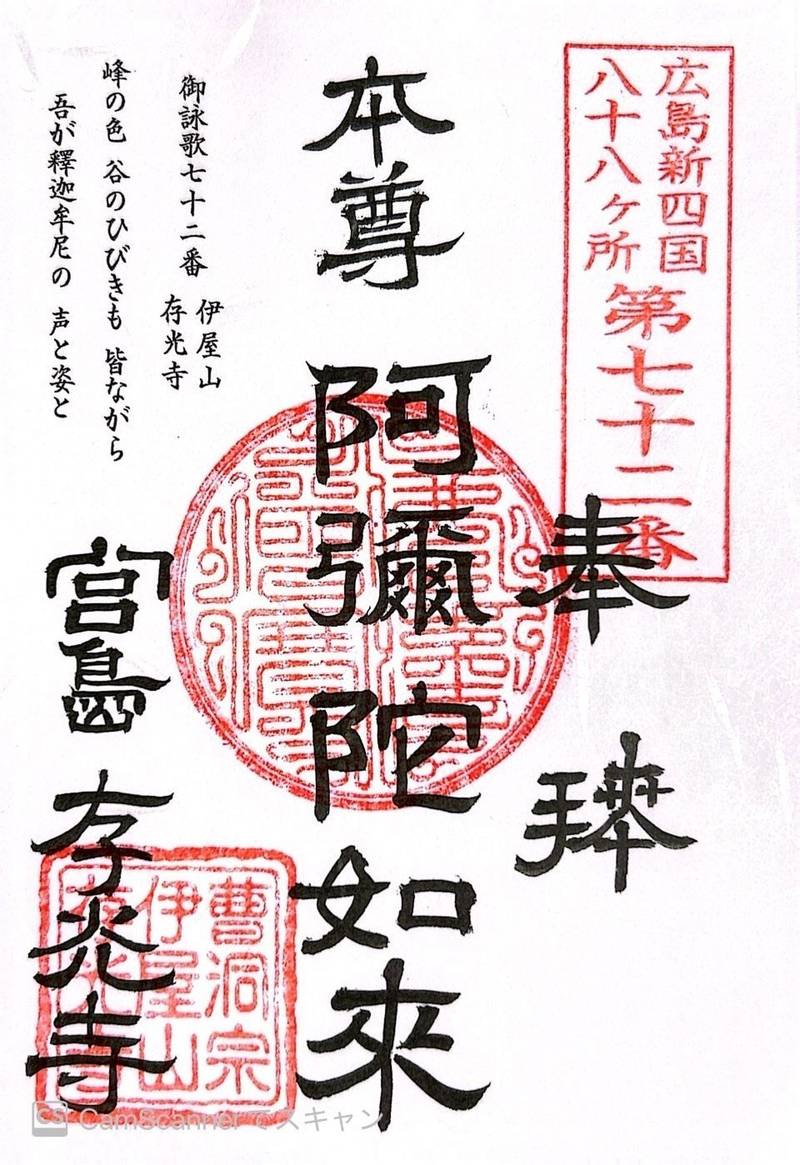 広島新四国
八十八ヶ所
第七十二番
奉拜
本尊 阿彌陀如來
御詠歌七十二番 伊屋山
存光寺
峰の色 谷のひびきも 皆ながら
吾が釋迦牟尼の 声と姿と
宮島 存光寺
曹洞宗
伊屋山
存光寺
CS CamScannerでスキャン